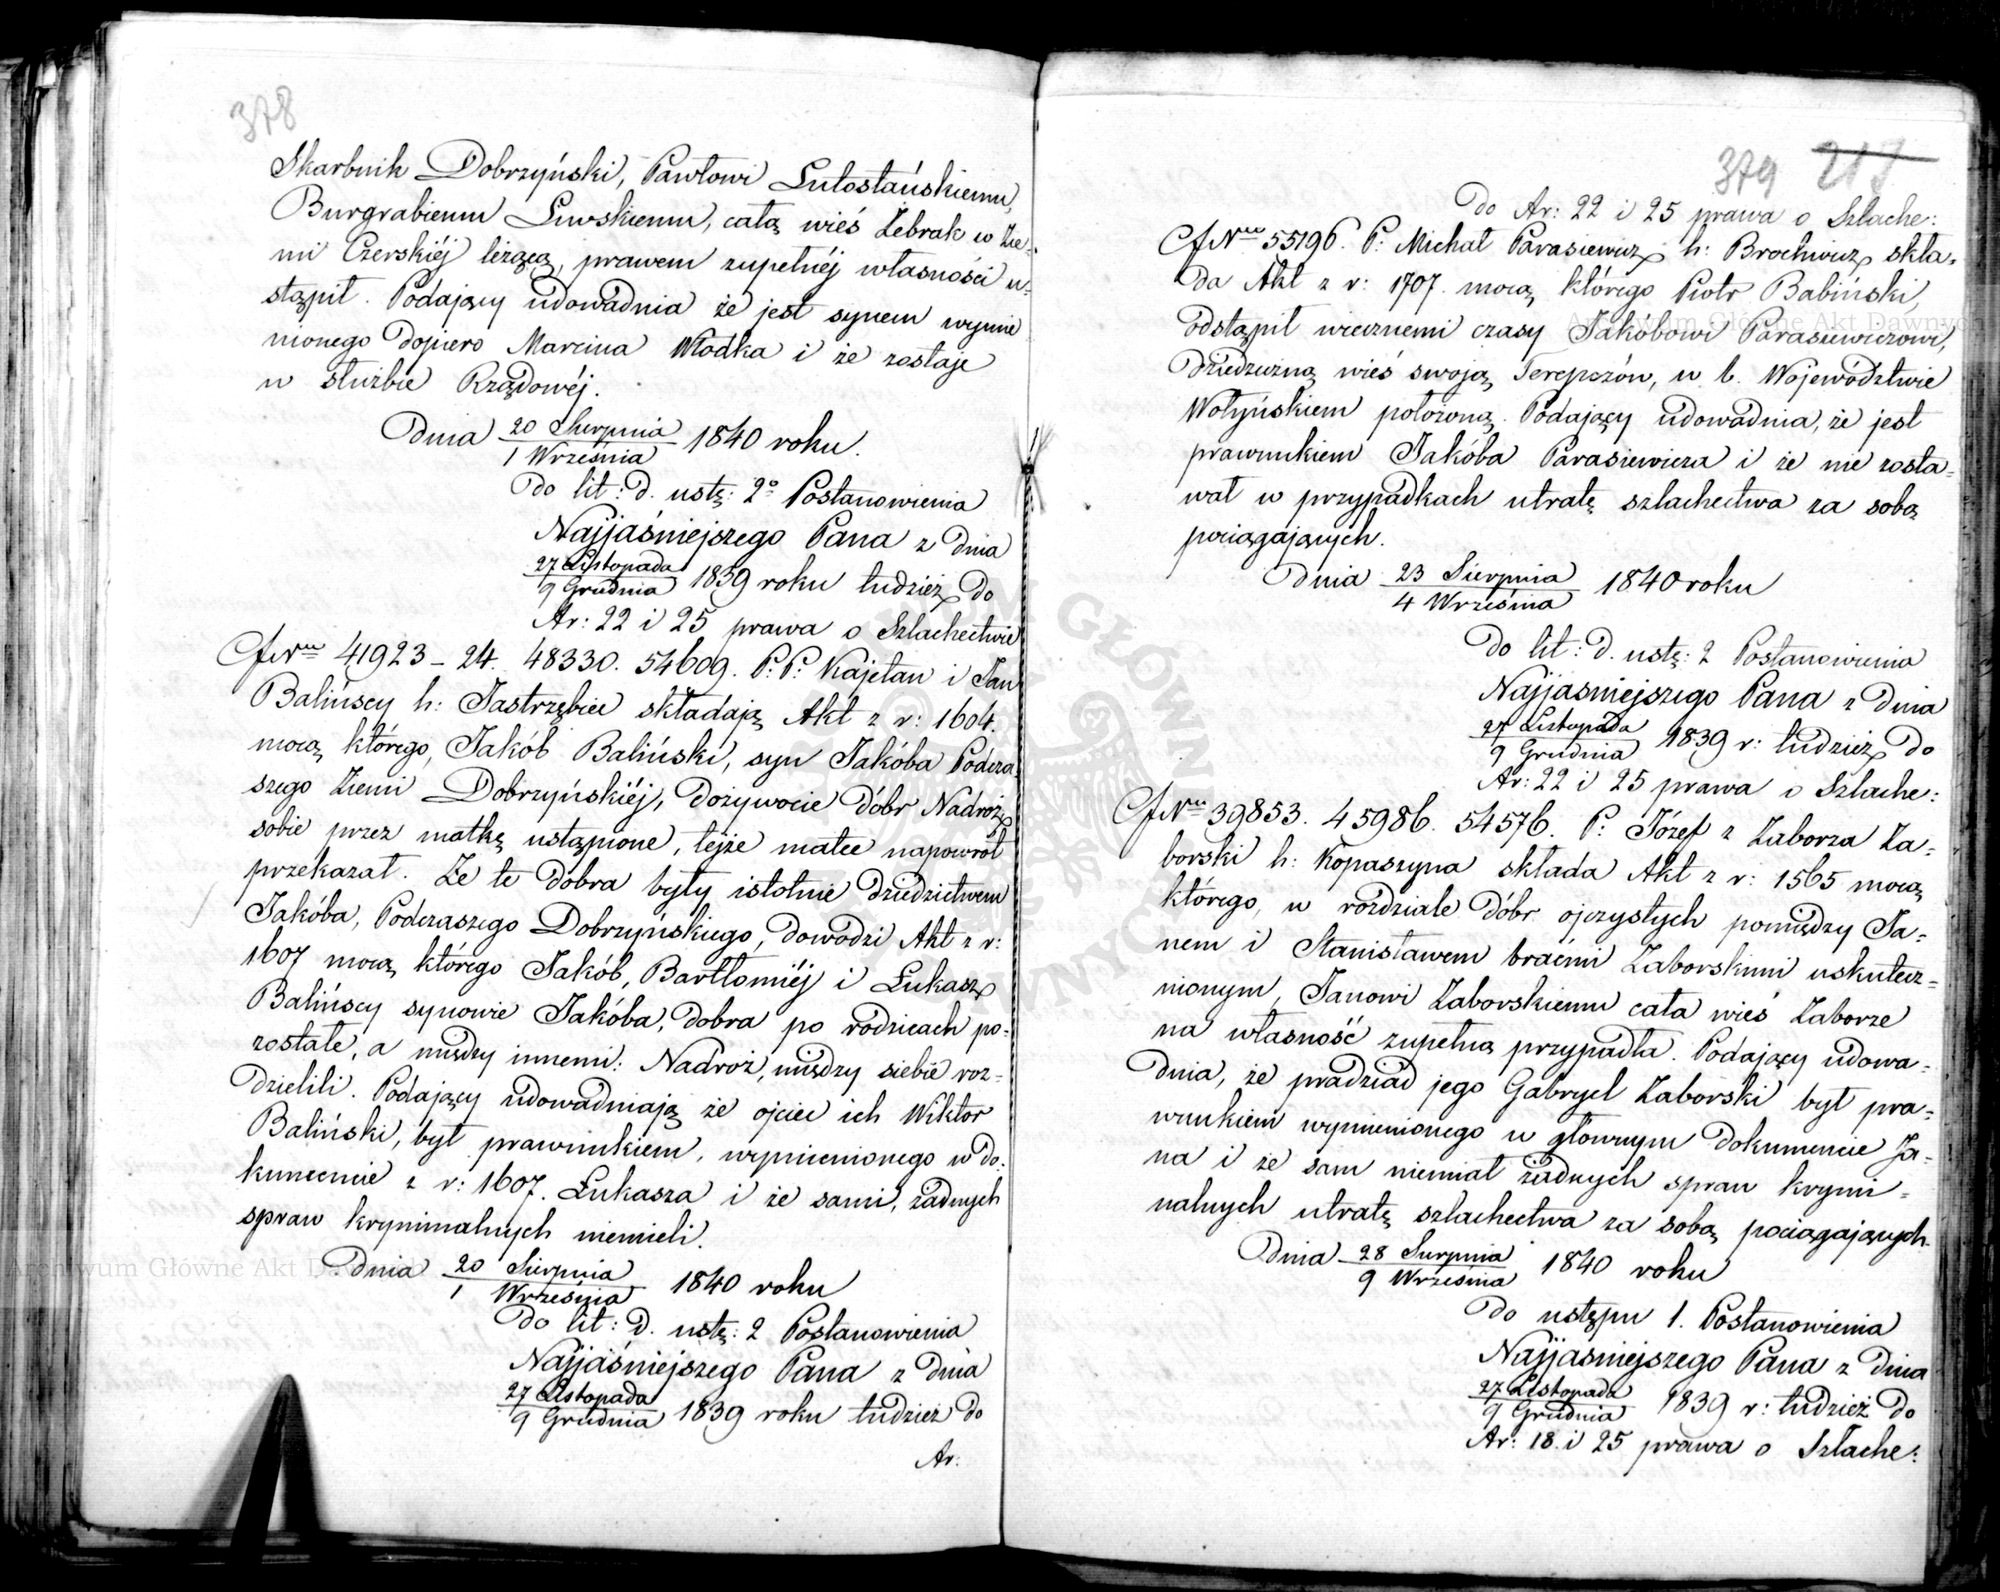 378
Skarbnik Dobrzyński, Pawłowi Lutostańskiemu,
Burgrabiemu Liwskiemu, całą wieś Żebrak w Zie-
mi Czerskiéj leżącą, prawem zupełnéj własności u-
stąpił. Podający udowadnia że jest synem wymie
nionego dopiero Marcina Włodka i że zostaje
w służbie Rządowéj.
Dnia 20 Sierpnia / 1 Września 1840 roku.
Do lit: D. ustę: 2° Postanowienia
Najjaśniejszego Pana z dnia
27 Listopada / 9 Grudnia 1839 roku tudzież do
Ar: 22 i 25 prawa o Szlachectwie
Nrm 41923-24. 48330. 54609. P.P. Kajetan i Jan
Balińscy h: Jastrzębiec składają Akt z r: 1604.
mocą którego, Jakób Baliński, syn Jakóba Podcza
szego Ziemi Dobrzyńskiéj, dożywocie dóbr Nadróż
sobie przez matkę ustąpione, tejże matce napowrót
przekazał. Że te dobra były istotnie dziedzictwem
Jakóba, Podczaszego Dobrzyńskiego, dowodzi Akt z r:
1607 mocą którego Jakób, Bartłomiéj i Łukasz
Balińscy synowie Jakóba, dobra po rodzicach po-
zostałe, a między innemi: Nadróż, między siebie roz-
dzielili. Podający udowadniają że ojciec ich Wiktor
Baliński, był prawnukiem, wymienionego w do-
kumencie z r: 1607. Łukasza i że sami, żadnych
spraw kryminalnych niemieli.
Dnia 20 Sierpnia / 1 Września 1840 roku
Do lit: D. ustę: 2 Postanowienia
Najjaśniejszego Pana z dnia
27 Listopada / 9 Grudnia 1839 roku tudzież do
Ar:
379 217
Do Ar: 22 i 25 prawa o Szlache:
Nrm 55196. P: Michał Parasiewicz h: Brochwicz skła-
da Akt z r: 1707. mocą którego Piotr Babiński,
odstąpił wiecznemi czasy Jakóbowi Parasiewiczowi,
dziedziczną wieś swoją Terepczów, w b. Województwie
Wołyńskiem położoną. Podający udowadnia, że jest
prawnukiem Jakóba Parasiewicza i że nie zosta-
wał w przypadkach utratę szlachectwa za sobą
pociągających.
Dnia 23 Sierpnia / 4 Września 1840 roku
Do lit: D. ustę: 2 Postanowienia
Najjaśniejszego Pana z dnia
27 Listopada / 9 Grudnia 1839 r: tudzież do
Ar: 22 i 25 prawa o Szlache:
Nrm 39853. 45986. 54576. P: Józef z Zaborza Za-
borski h: Kopaszyna składa Akt z r: 1565 mocą
którego, w rozdziale dóbr ojczystych pomiędzy Ja-
nem i Stanisławem braćmi Zaborskimi uskutecz-
nionym, Janowi Zaborskiemu cała wieś Zaborze
na własność zupełną przypadła. Podający udowa-
dnia, że pradziad jego Gabryel Zaborski był pra-
wnukiem wymienionego w głównym dokumencie Ja-
na i że sam niemiał żadnych spraw krymi-
nalnych utratę szlachectwa za sobą pociągających.
Dnia 28 Sierpnia / 9 Września 1840 roku
Do ustępu 1. Postanowienia
Najjaśniejszego Pana z dnia
27 Listopada / 9 Grudnia 1839 r: tudzież do
Ar: 18. i 25 prawa o Szlache:
Archiwum Główne Akt Dawnych
Archiwum Główne Akt Dawnych